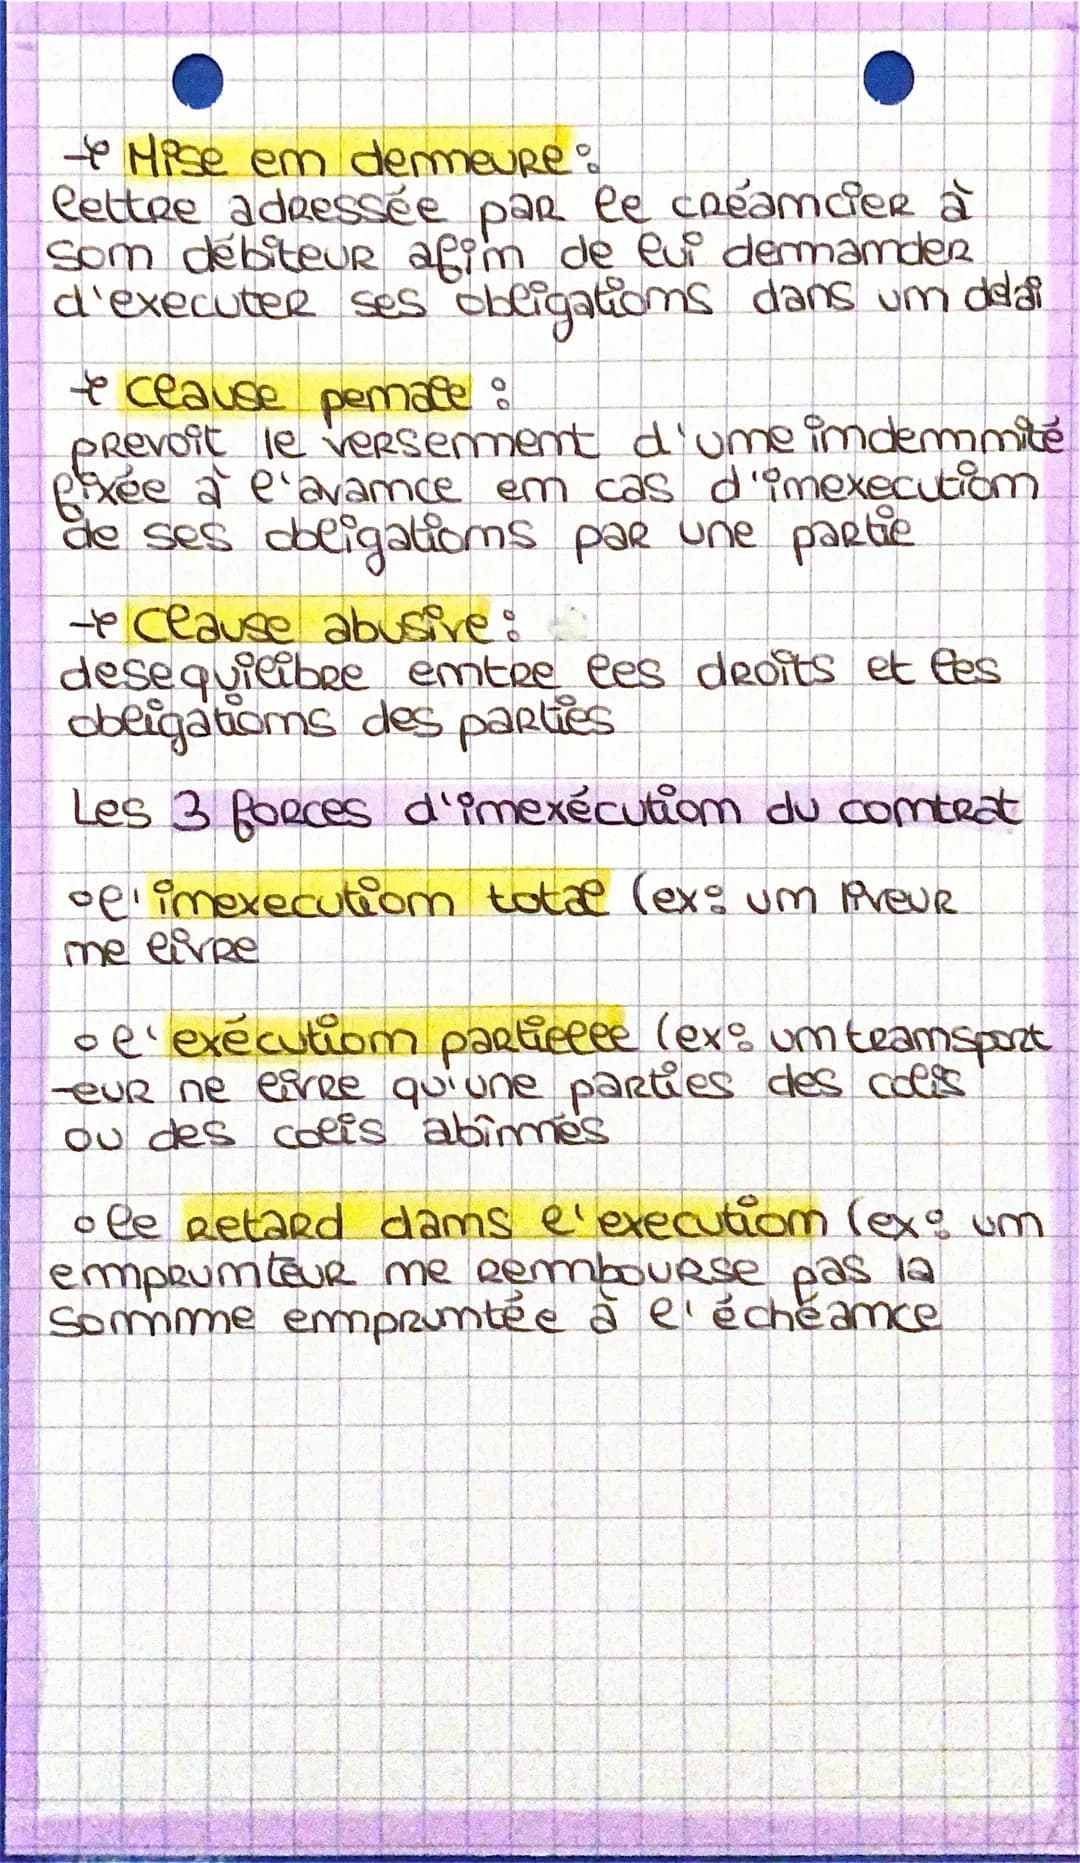 → Mise en demeure :
lettre adressée par le créancier à
son débiteur afin de lui demander
d'executer ses obligations dans un delai
→ clause penale :
prevoit le versement d'une indemnité
fixée à l'avance en cas d'inexecution
de ses obligations par une partie
→ clause abusive :
desequilibre entre les droits et les
obligations des parties
Les 3 forces d'inexécution du contrat
• l'inexecution total (ex: un
ne livre
• l'exécution partielle (ex: un transport
-eur ne livre qu'une parties des colis
ou des colis abîmés
• le retard dans l'execution (ex: un
emprunteur ne rembourse pas la
somme empruntée à l'échéance